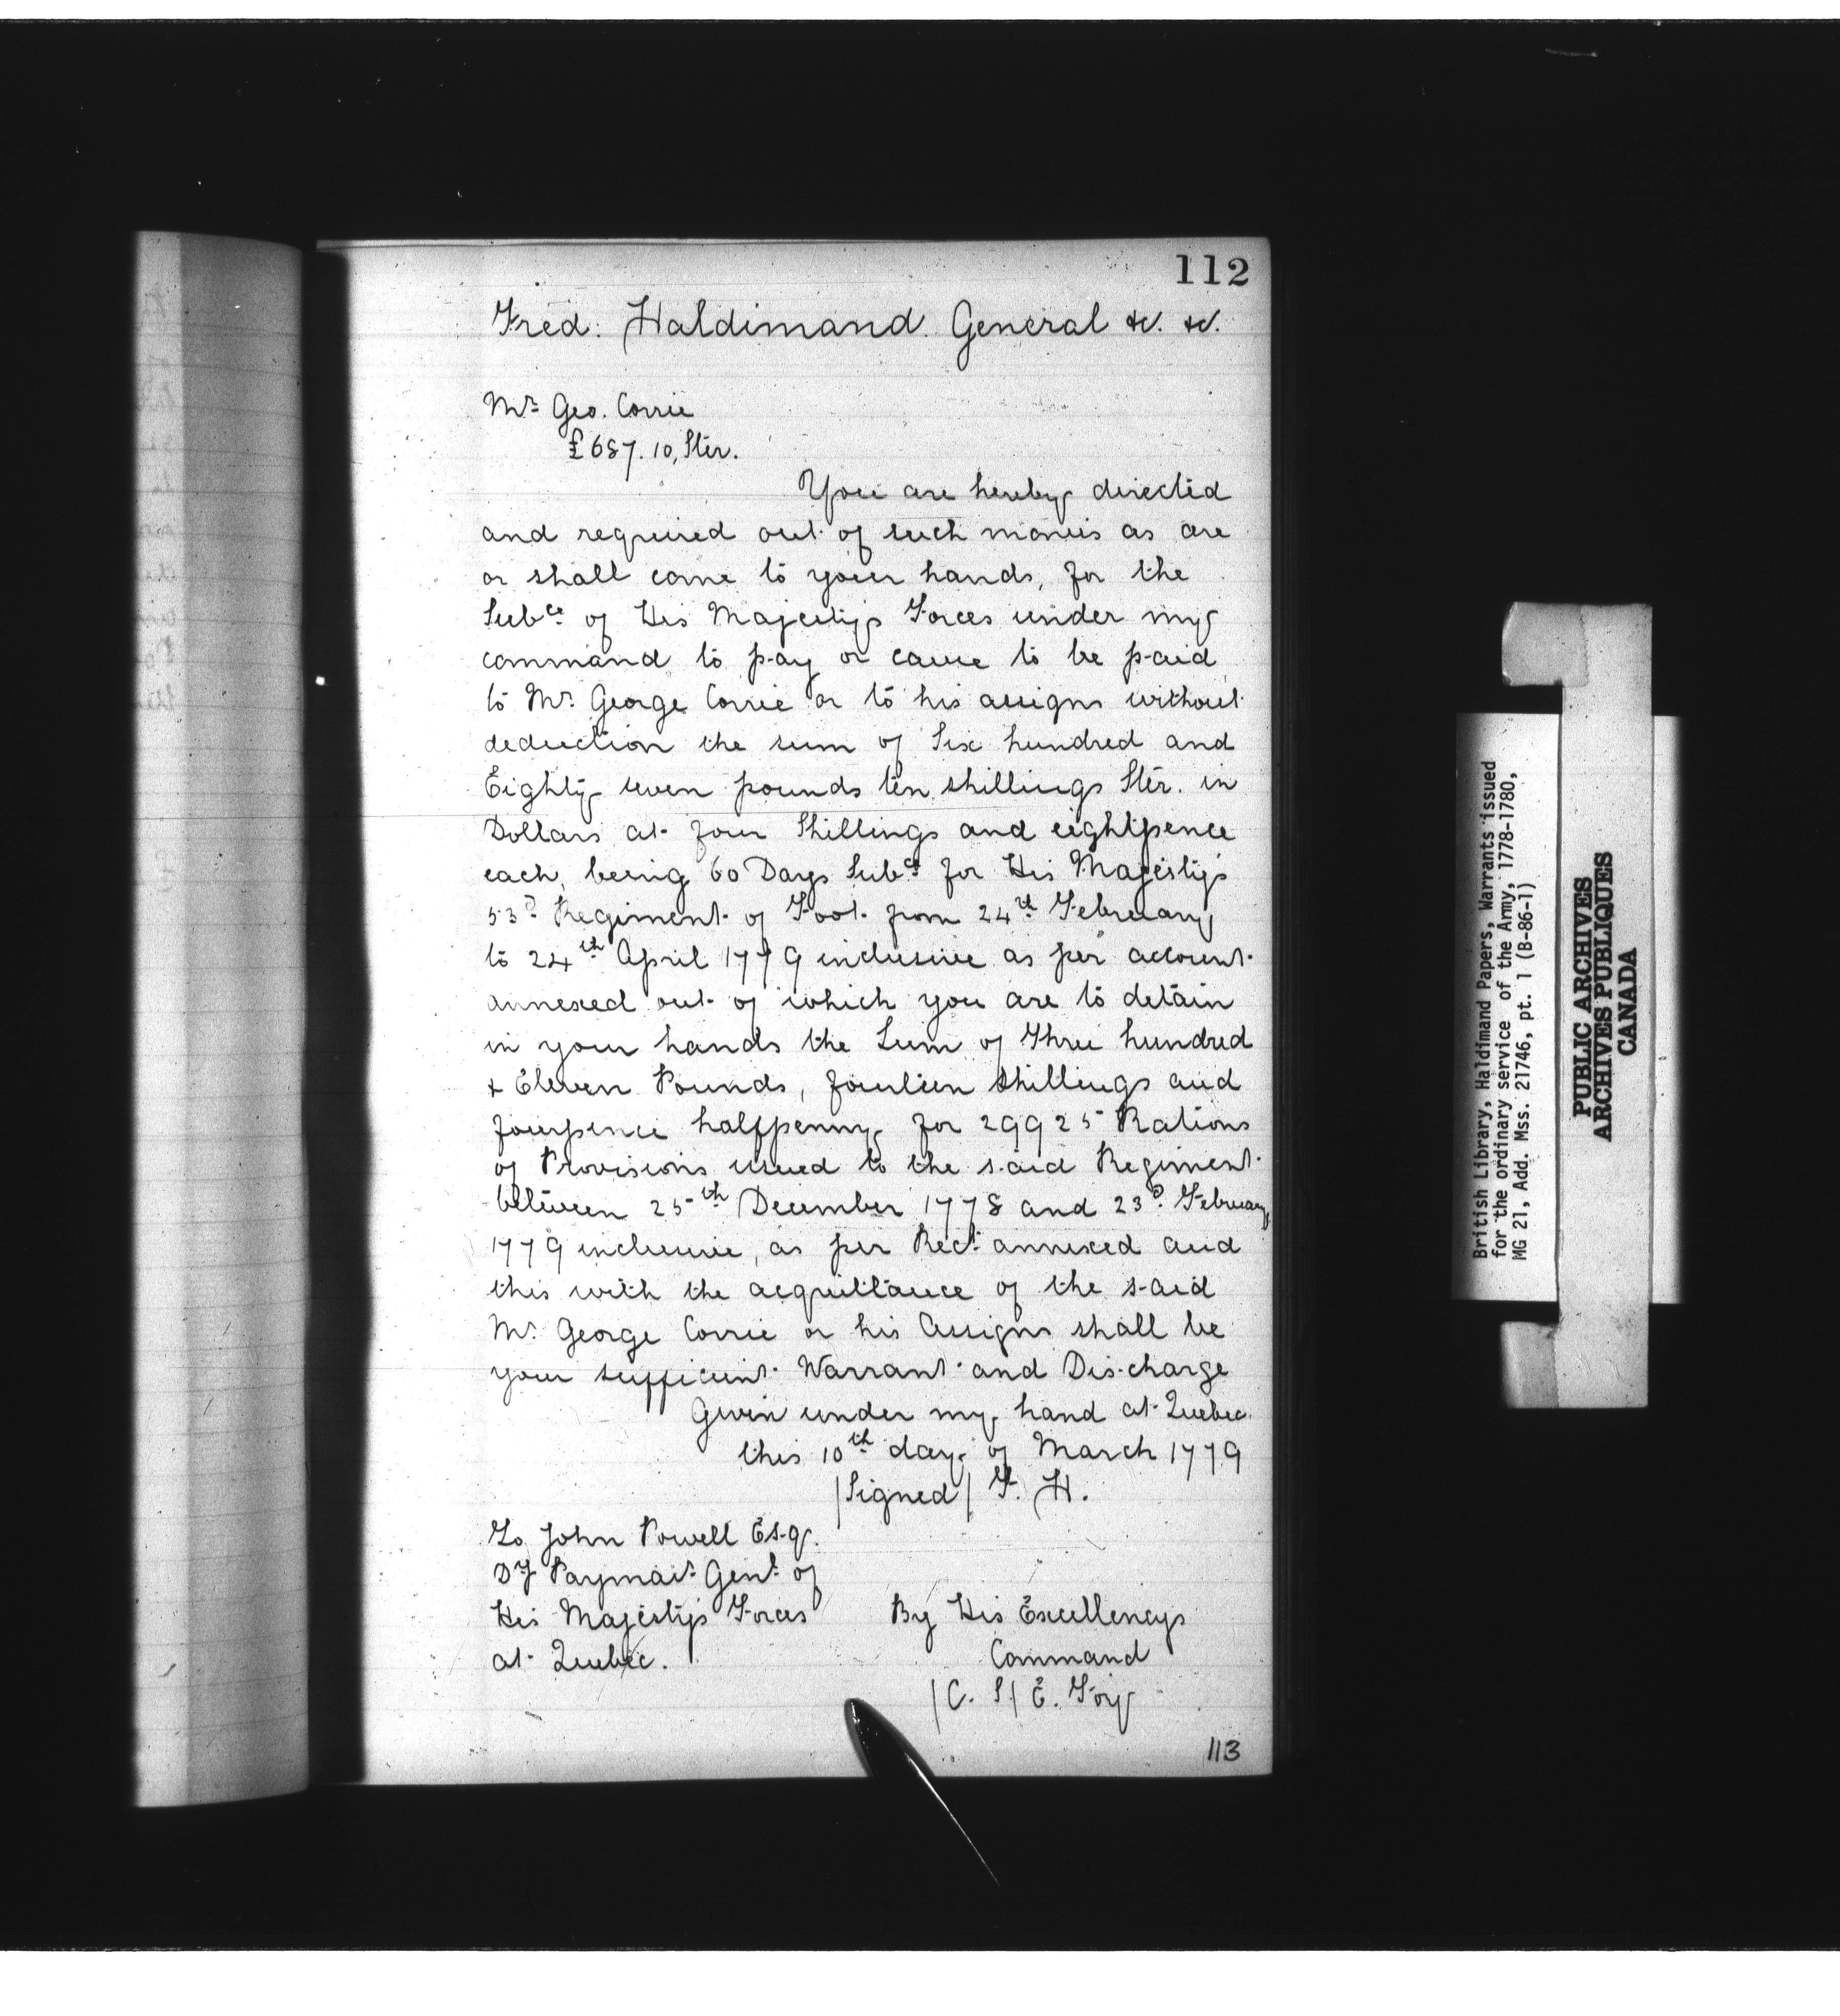 112
Fred. Haldimand General &c. &c.
Mr. Geo. Corrie
£687.10, Ster.
You are hereby directed
and required out of such monies as are
or shall come to your hands, for the
Subce. of His Majestys Forces under my
command to pay or cause to be paid
to Mr. George Corrie or to his assigns without
deduction the sum of Six hundred and
Eighty seven pounds ten shillings Ster. in
Dollars at four Shillings and eightpence
each, being 60 Days Subce. for His Majesty's
53d. Regiment of Foot from 24th February
to 24th April 1779 inclusive as per account
annexed out of which you are to detain
in your hands the Sum of Three hundred
& Eleven Pounds, fourteen Shillings and
fourpence halfpenny for 29925 Rations
of Provisions issued to the said Regiment
between 25th December 1778 and 23d. February
1779 inclusive, as per Rect. annexed and
this with the acquittance of the said
Mr. George Corrie or his Assigns shall be
your sufficient Warrant and Discharge
Given under my hand at Quebec
this 10th day of March 1779
|Signed| F. H.
To John Powell Esq.
Dy Paymasr. Genl. of
His Majestys Forces
at Quebec.
By His Excellencys
Command
|C. S| E. Foy
113
British Library, Haldimand Papers, Warrants issued
for the ordinary service of the Army, 1778-1780,
MG 21, Add. Mss. 21746, pt. 1 (B-86-1)
PUBLIC ARCHIVES
ARCHIVES PUBLIQUES
CANADA